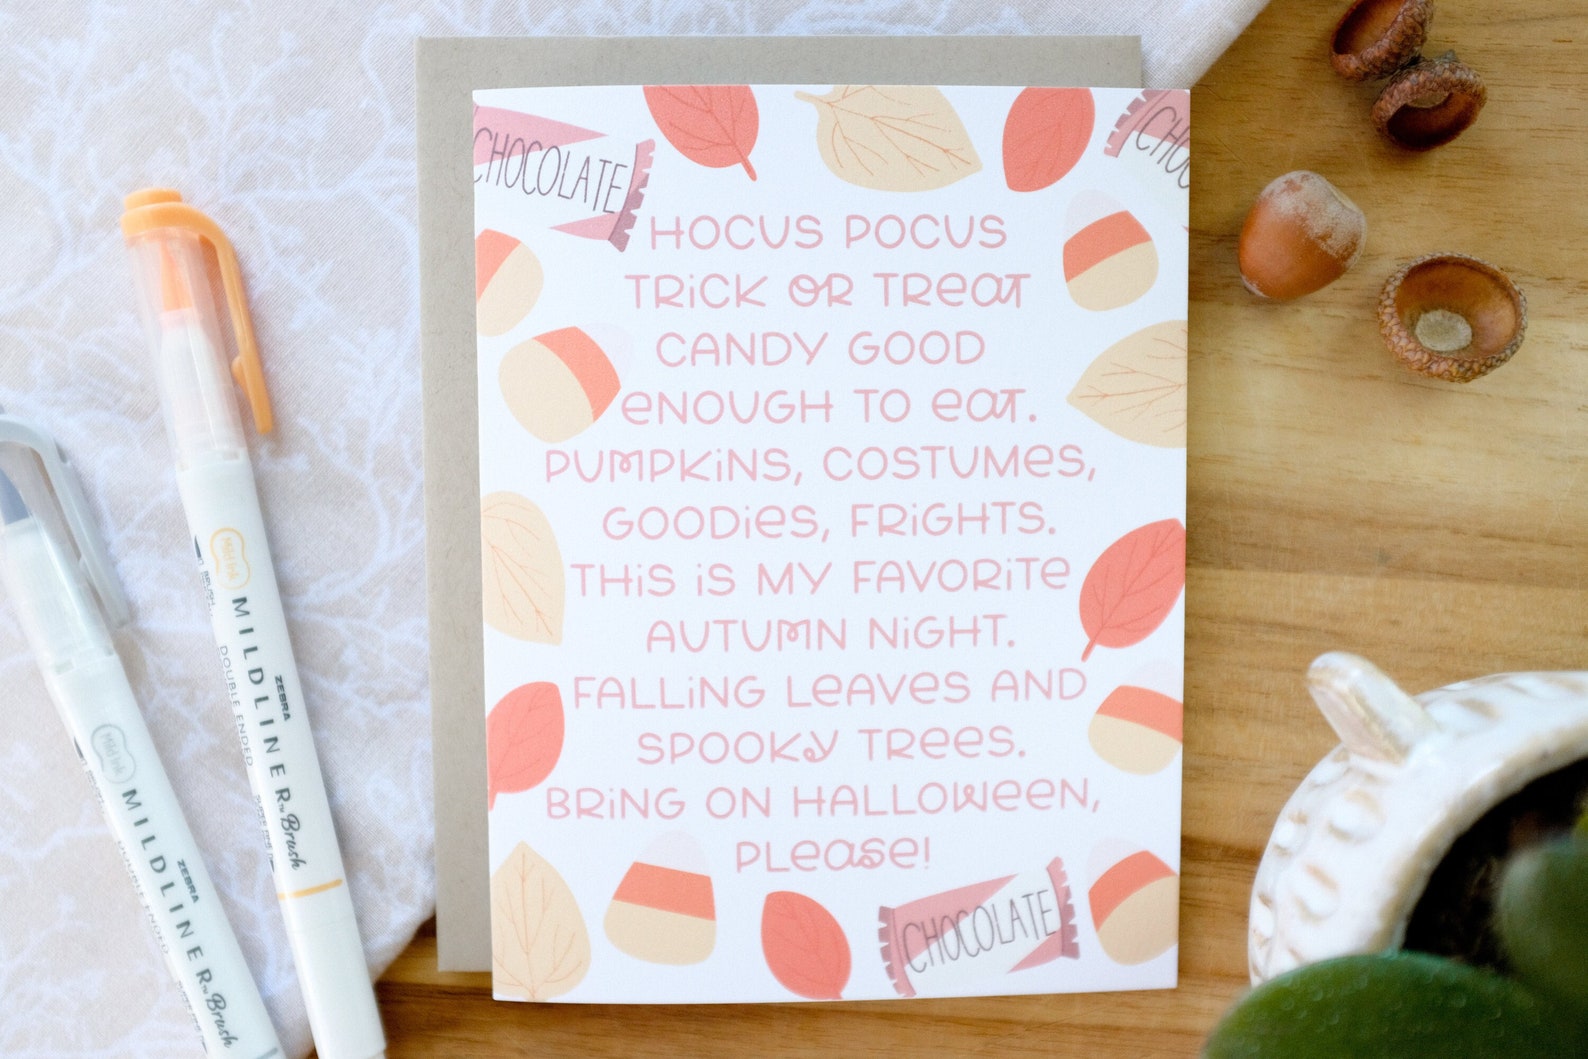 CHOCOLATE
CHOC
HOCUS POCUS
TRiCK OR TReaT
CANDY GOOD
eNOUGH TO eaT.
PUMPKiNS, COSTUMes,
GOODies, FRiGHTS.
THiS iS MY FAVORiTe
AUTUMN NiGHT.
FALLiNG LeAVeS AND
SPOOKy TReeS.
BRiNG ON HALLOWeeN,
PLease!
CHOCOLATE
Mild ink
BRUSH
MILDLINER™ Brush
ZEBRA
DOUBLE ENDED
Mild ink
MILDLINER™ Brush
ZEBRA
DOUBLE ENDED